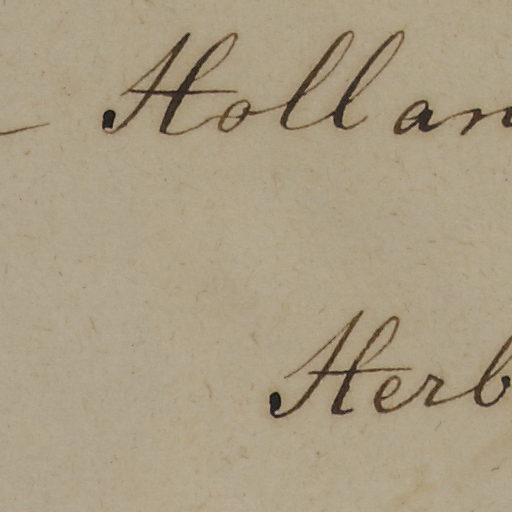 Hollan
Herb